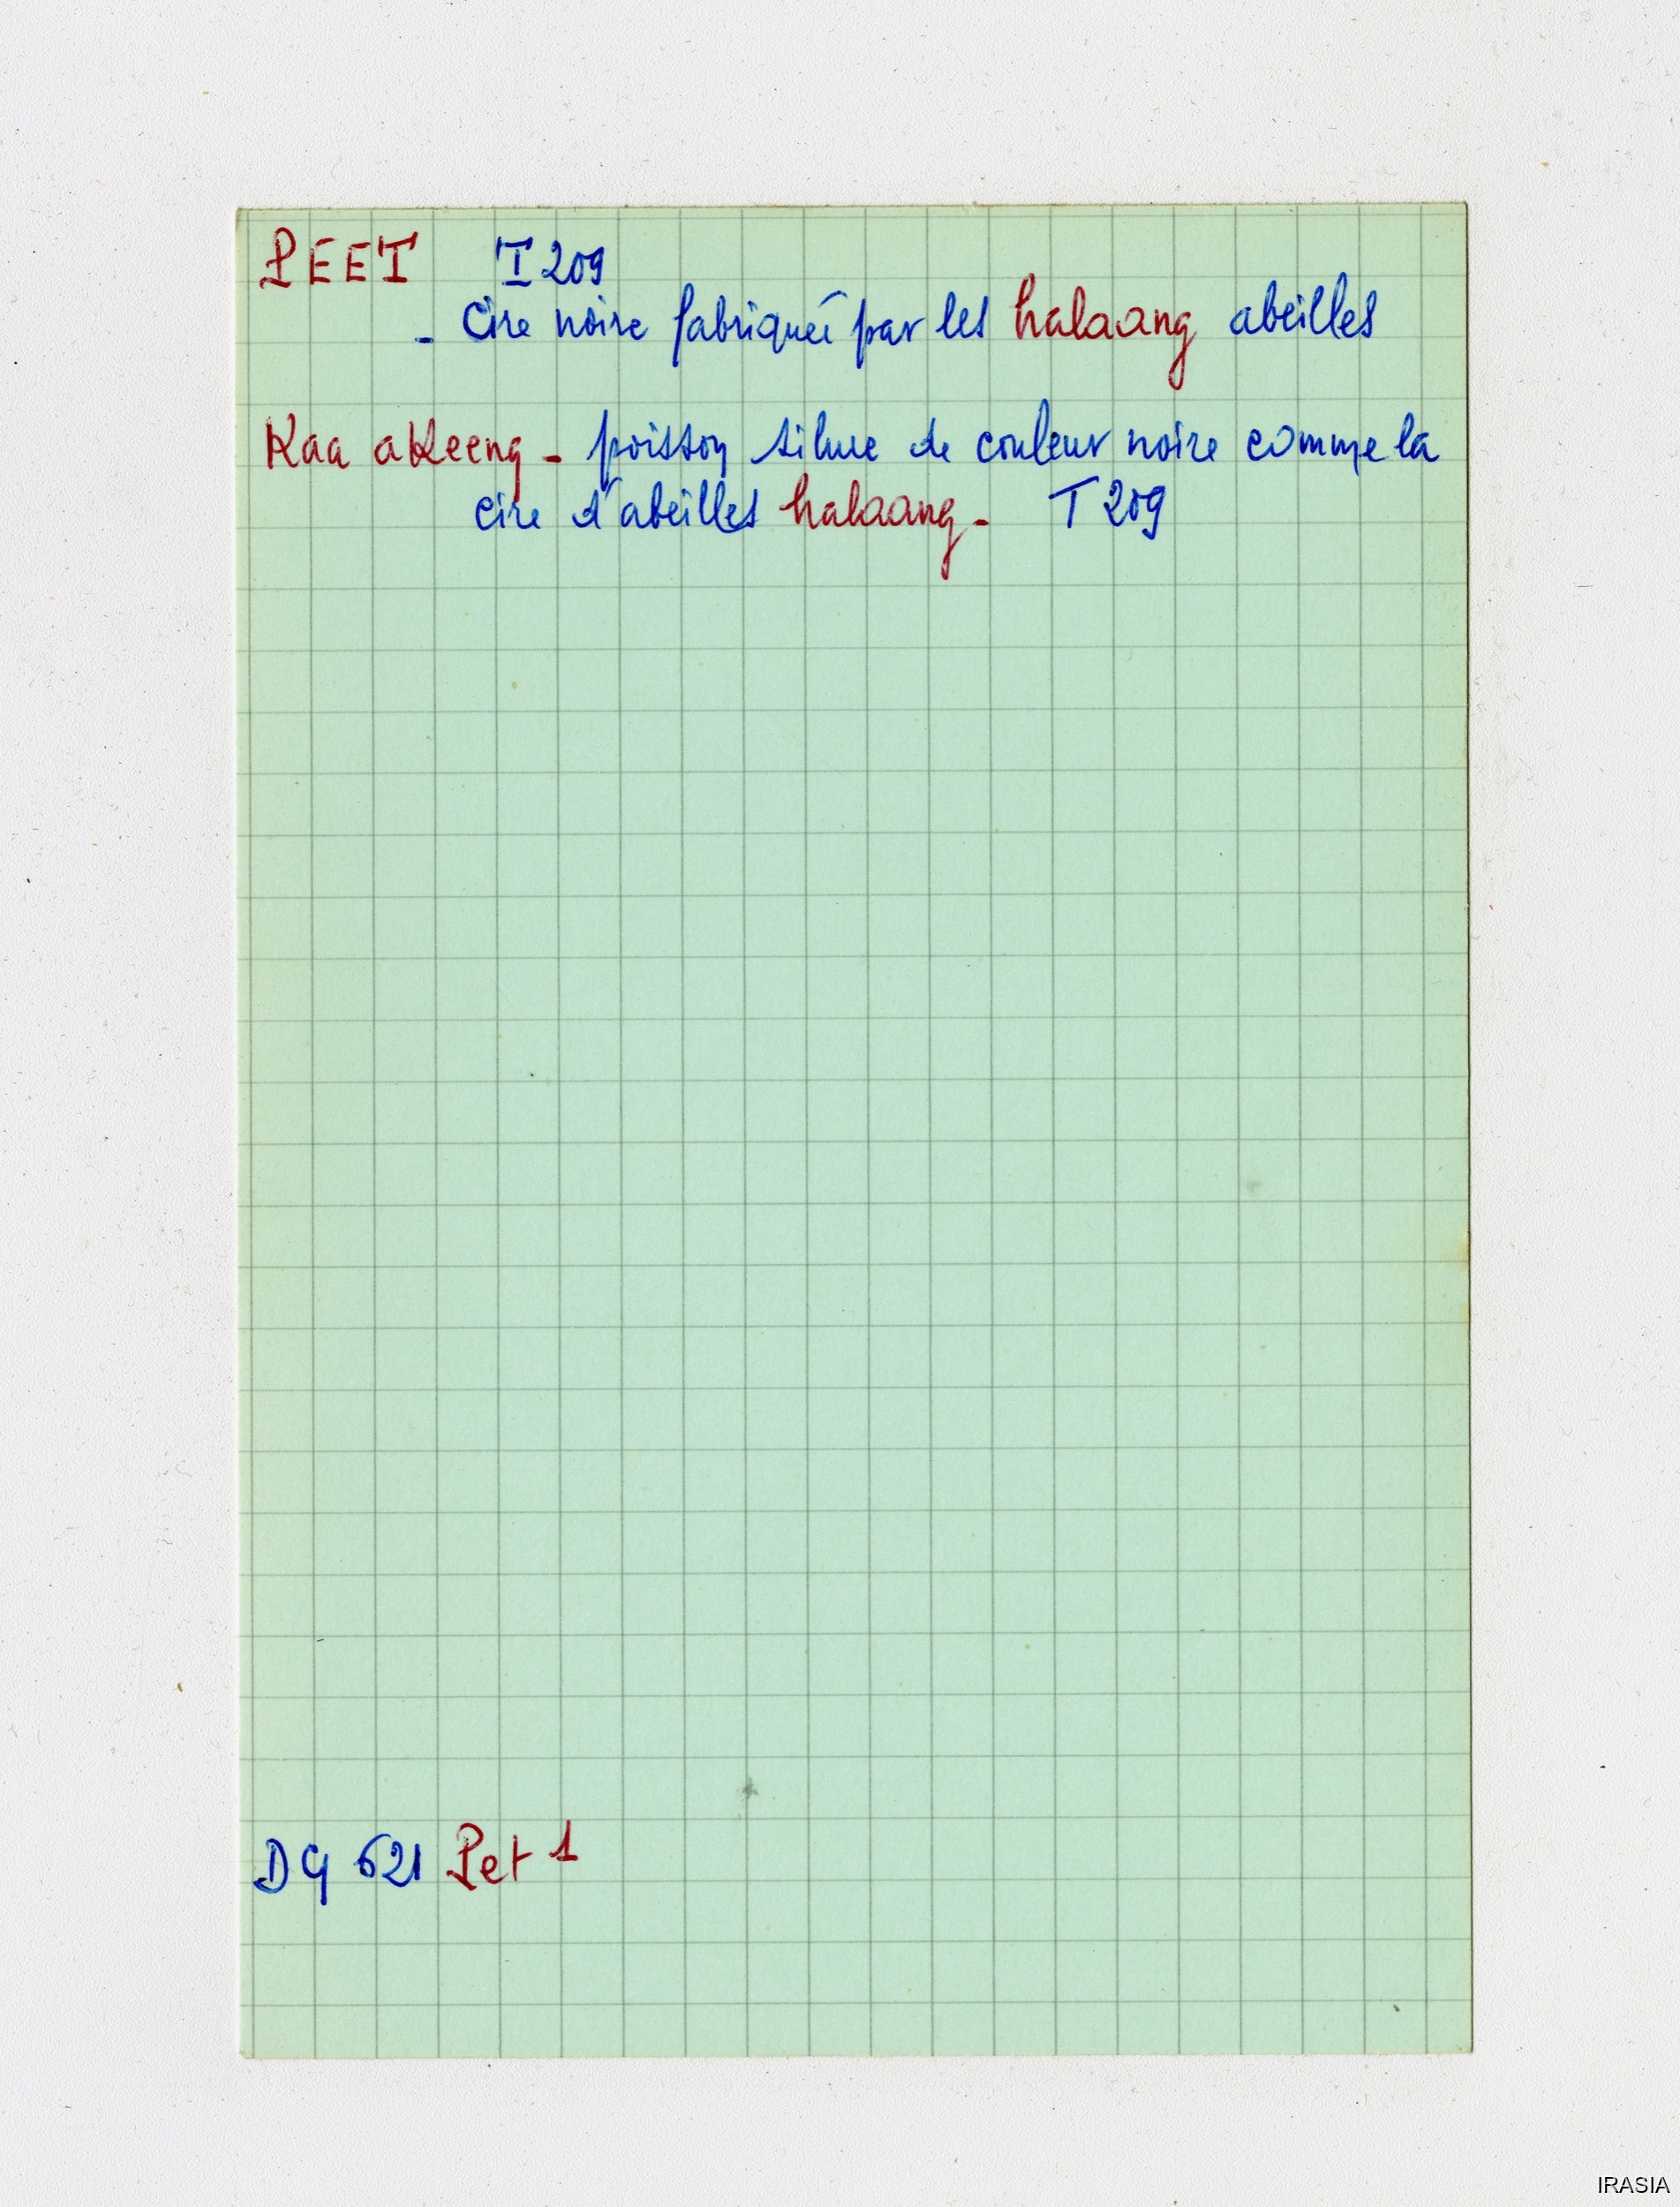 PEET T 209
- Cire noire fabriquée par les halaang abeilles
Kaa akeeng - poisson silure de couleur noire comme la
cire d'abeilles halaang - T 209
DG 621 Pet 1
IRASIA